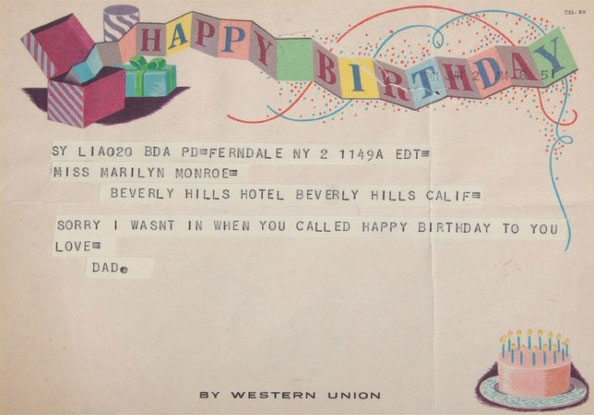 TSS. 99
HAPPY BIRTHDAY
SY LIA020 BDA PD=FERNDALE NY 2 1149A EDT=
MISS MARILYN MONROE=
BEVERLY HILLS HOTEL BEVERLY HILLS CALIF=
SORRY I WASNT IN WHEN YOU CALLED HAPPY BIRTHDAY TO YOU
LOVE=
DAD•
BY WESTERN UNION